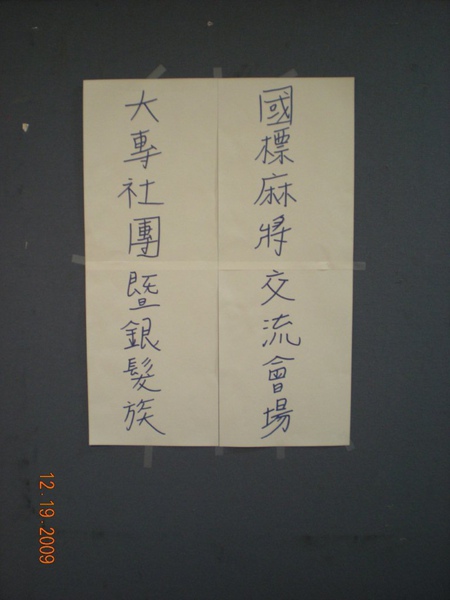 大專社團暨銀髮族
國標麻將交流會場
12.19.2009